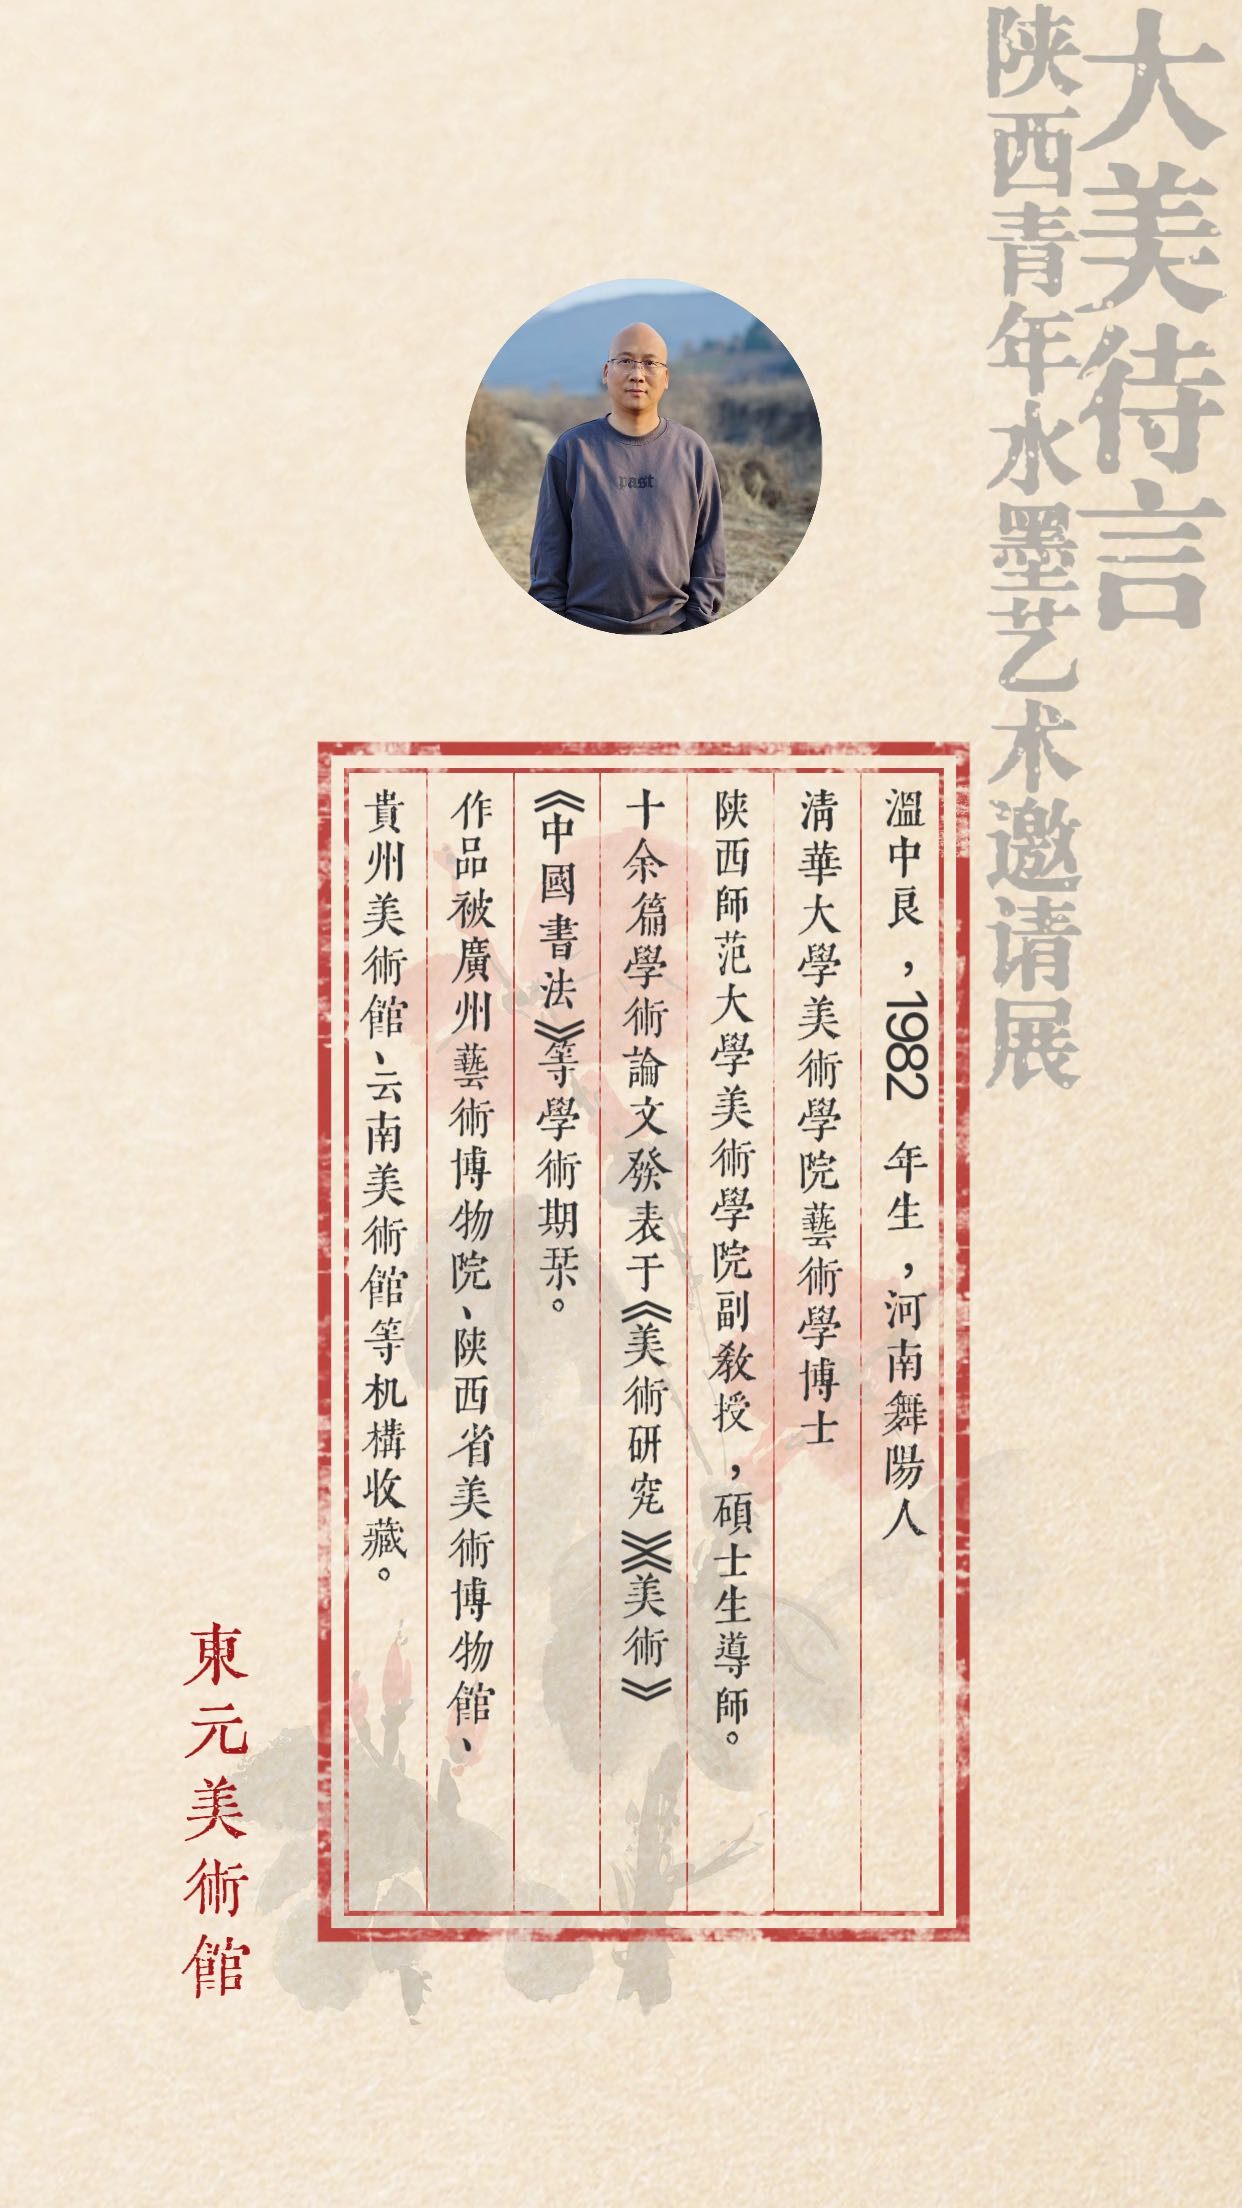 大美待言
陕西青年水墨艺术邀请展
past
溫中良，1982 年生，河南舞陽人
清華大學美術學院藝術學博士
陝西師范大學美術學院副教授，碩士生導師。
十余篇學術論文發表于《美術研究》《美術》
《中國書法》等學術期栞。
作品被廣州藝術博物院、陝西省美術博物館、
貴州美術館、云南美術館等机構收藏。
東元美術館